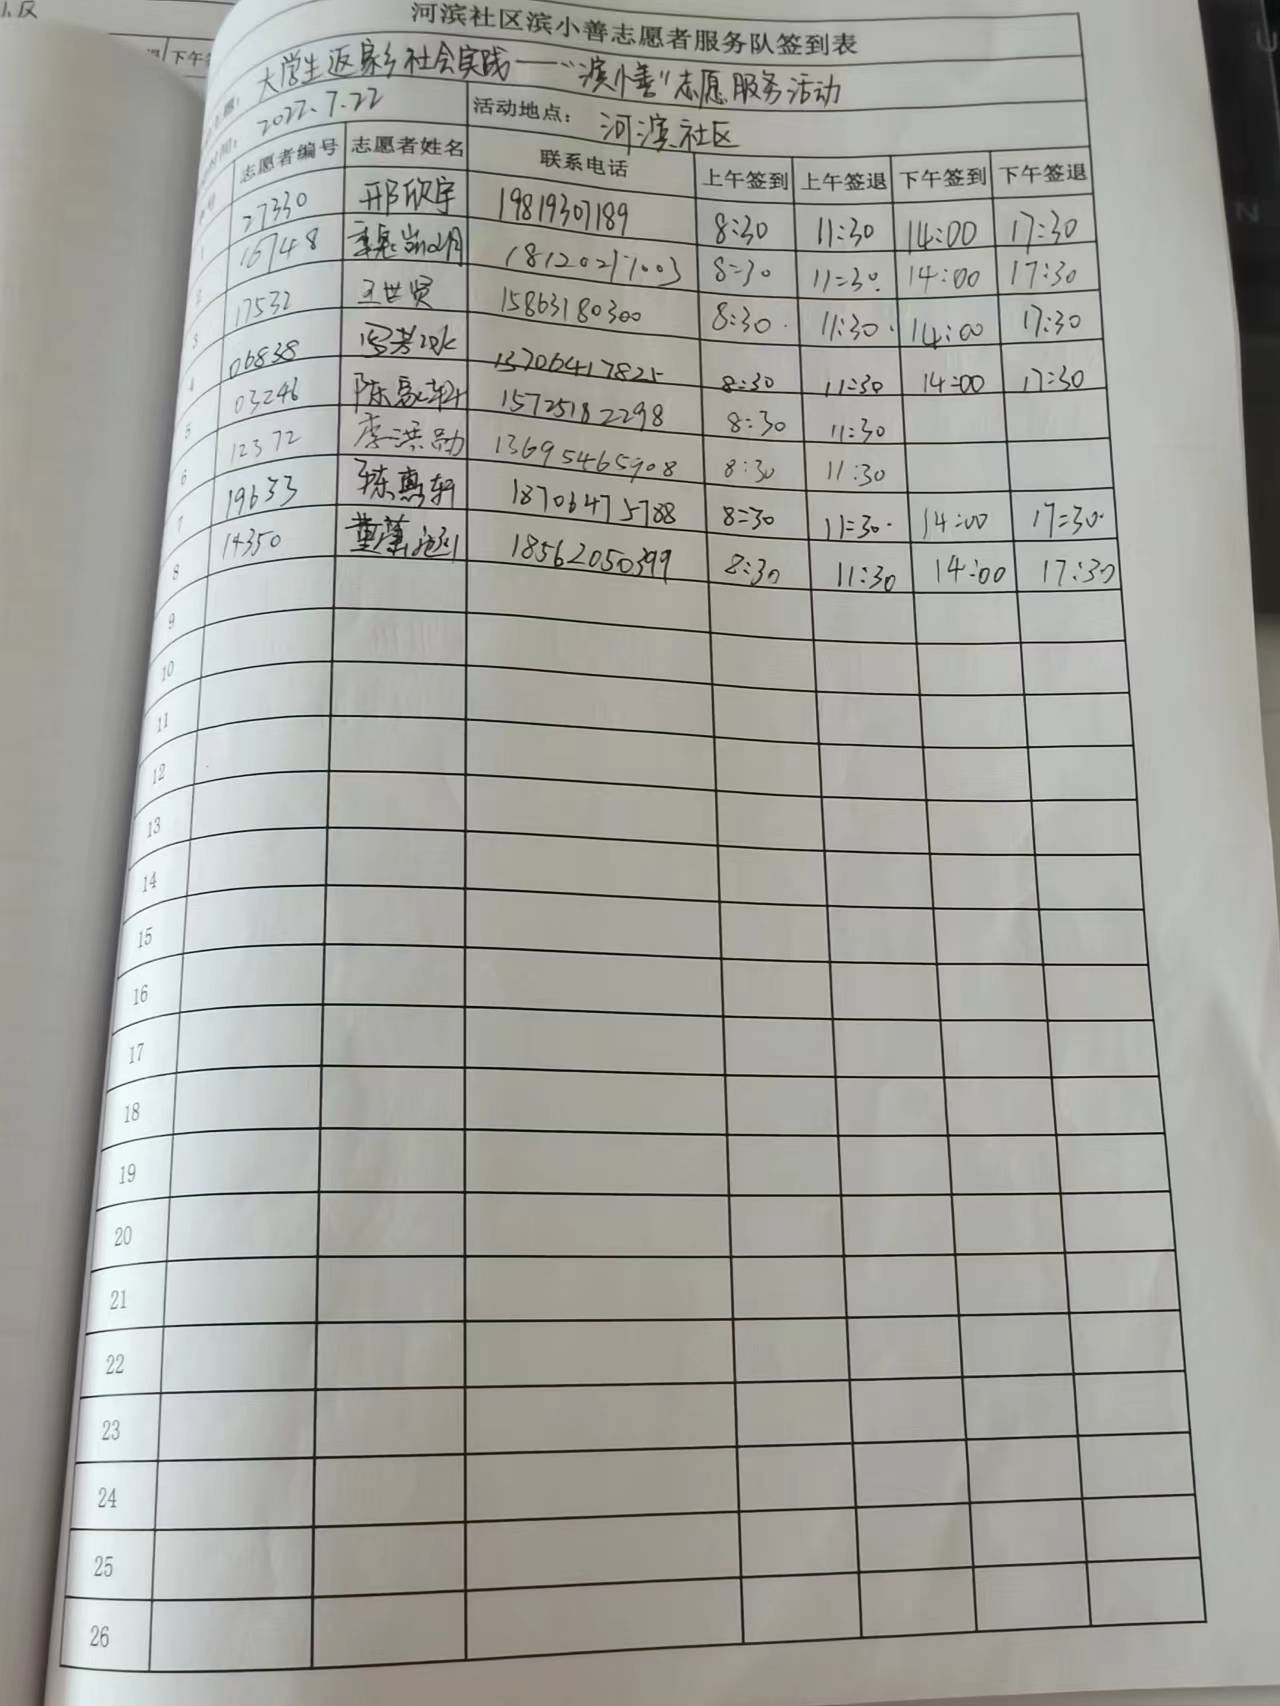 河滨社区滨小善志愿者服务队签到表
大学生返家乡社会实践——"滨小善"志愿服务活动
2022.7.22 活动地点: 河滨社区
志愿者编号 志愿者姓名 联系电话 上午签到 上午签退 下午签到 下午签退
1 27330 邢欣宇 19819307189 8:30 11:30 14:00 17:30
2 16748 18120217003 8:30 11:30 14:00 17:30
3 17532 王世贤 15863180300 8:30 11:30 14:00 17:30
4 06838 13706417825 8:30 11:30 14:00 17:30
5 03246 陈 15725182298 8:30 11:30
6 12372 李洪勋 13695465908 8:30 11:30
7 19633 18706475788 8:30 11:30 14:00 17:30
8 14350 18562050399 8:30 11:30 14:00 17:30
9
10
11
12
13
14
15
16
17
18
19
20
21
22
23
24
25
26